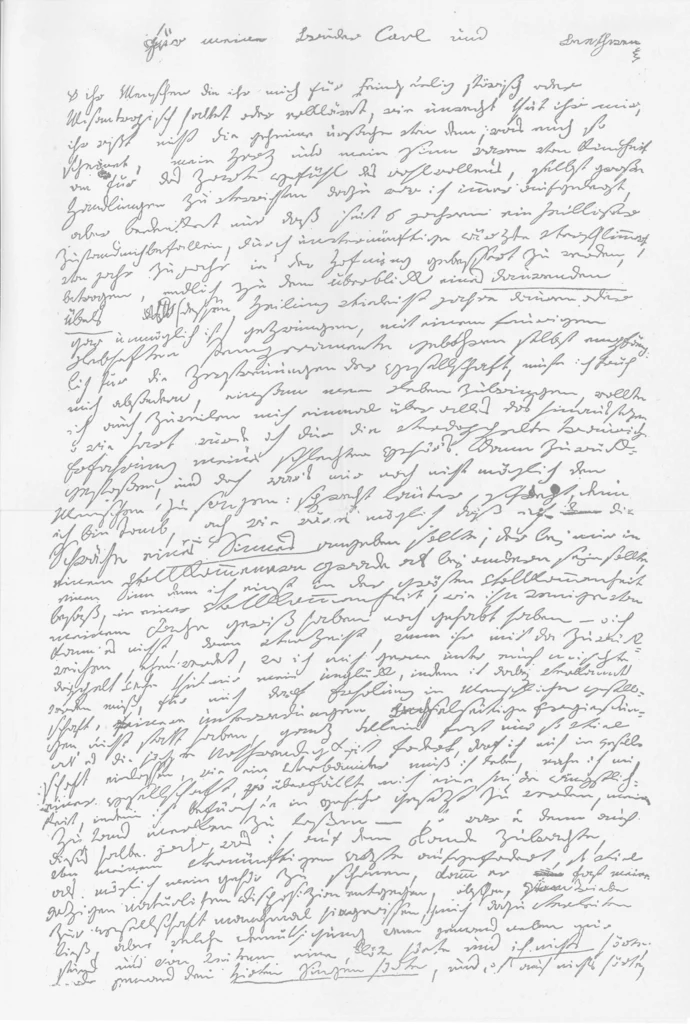 für meine Brüder Carl und Beethoven
o ihr Menschen die ihr mich für Feindseelig störisch oder
Misantropisch haltet oder erkläret, wie unrecht thut ihr mir,
ihr wißt nicht die geheime urßache von dem, was euch so
scheinet, mein Herz und mein Sinn waren von Kindheit
an für das Zarte Gefühl des wohlwollens, selbst große
Handlungen zu verrichten dazu war ich immer aufgelegt,
aber bedenket nur daß seit 6 jahren ein heilloser
Zustand mich befallen, durch unvernünftige ärzte verschlimmert,
von jahr zu jahr in der Hofnung gebessert zu werden,
betrogen, endlich zu dem überblick eines daurenden
Übels dessen Heilung vieleicht jahre dauren oder
gar unmöglich ist, gezwungen, mit einem feuerigen
Lebhaften Temperamente gebohren selbst empfäng-
lich für die Zerstreuungen der Gesellschaft, muste ich früh
mich absondern, einsam mein Leben zubringen, wollte
ich auch zuweilen mich einmal über alles das hinaussezen,
o wie hart wurde ich dur die verdoppelte traurige
Erfahrung meines schlechten Gehörs dann zurück-
gestoßen, und doch war's mir noch nicht möglich den
Menschen zu sagen: sprecht lauter, schreyt, denn
ich bin Taub, ach wie wär es möglich daß ich die
Schwäche eines Sinnes angeben sollte; der bey mir in
einem vollkommenern grade als bey andern seyn sollte
einen Sinn denn ich einst in der grösten Vollkommenheit
besaß, in einer Vollkommenheit, wie ihn wenige von
meinem Fache gewiß haben noch gehabt haben – o ich
kann es nicht, drum verzeiht, wenn ihr mich da zurück-
weichen sehen werdet, wo ich mich gerne unter euch mischte
doppelt Wehe thut mir mein unglück, indem ich dabey verkannt
werden muß, für mich darf Erholung in Menschlicher Gesell-
schaft, feinere unterredungen, Wechselseitige Ergießun-
gen nicht statt haben, ganz allein fast nur so viel
als es die höchste Nothwendigkeit fodert, darf ich mich in gesell-
schaft einlassen, wie ein Verbannter muß ich leben, nahe ich mich
einer Gesellschaft, so überfällt mich eine heiße ängstlich-
keit, indem ich befürchte in Gefahr gesezt zu werden, meinen
Zustand merken zu laßen – so war es denn auch
dieses halbe jahr, was ich auf dem Lande zubrachte,
von meinem vernünftigen Arzte aufgefodert, so viel
als möglich mein Gehör zu schonen, kamm er fast meiner
jezigen natürlichen Disposizion entgegen, obschon, Vom Triebe
zur Gesellschaft manchmal hingerissen, ich mich dazu verleiten
ließ, aber welche Demüthigung wenn jemand neben mir
stund und von weitem eine Flöte hörte und ich nichts hörte,
oder jemand den Hirten Singen hörte, und ich auch nichts hörte,